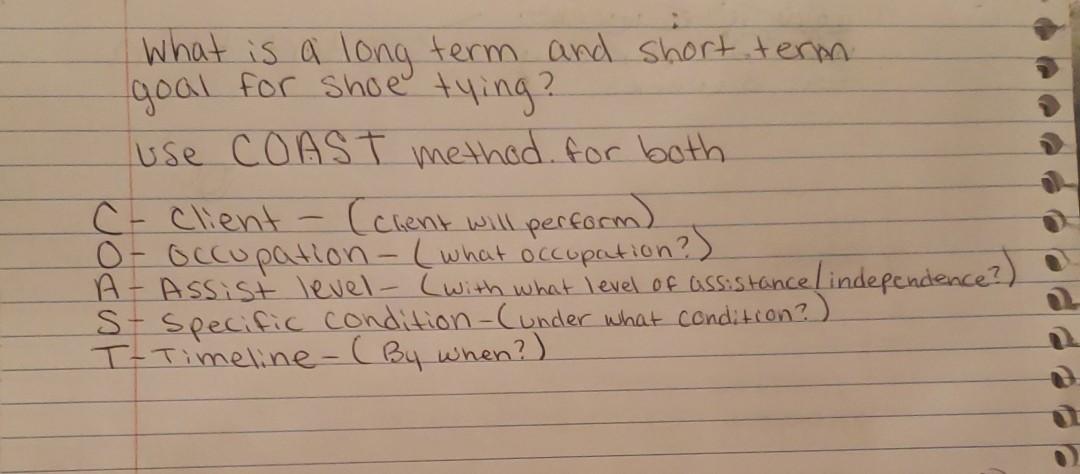 What is a long term and short term
goal for shoe tying?
use COAST method. for both
C - Client - (Client will perform)
O - Occupation - (what occupation?)
A - Assist level - (with what level of assistance/independence?)
S - Specific condition - (under what condition?)
T - Timeline - (By when?)